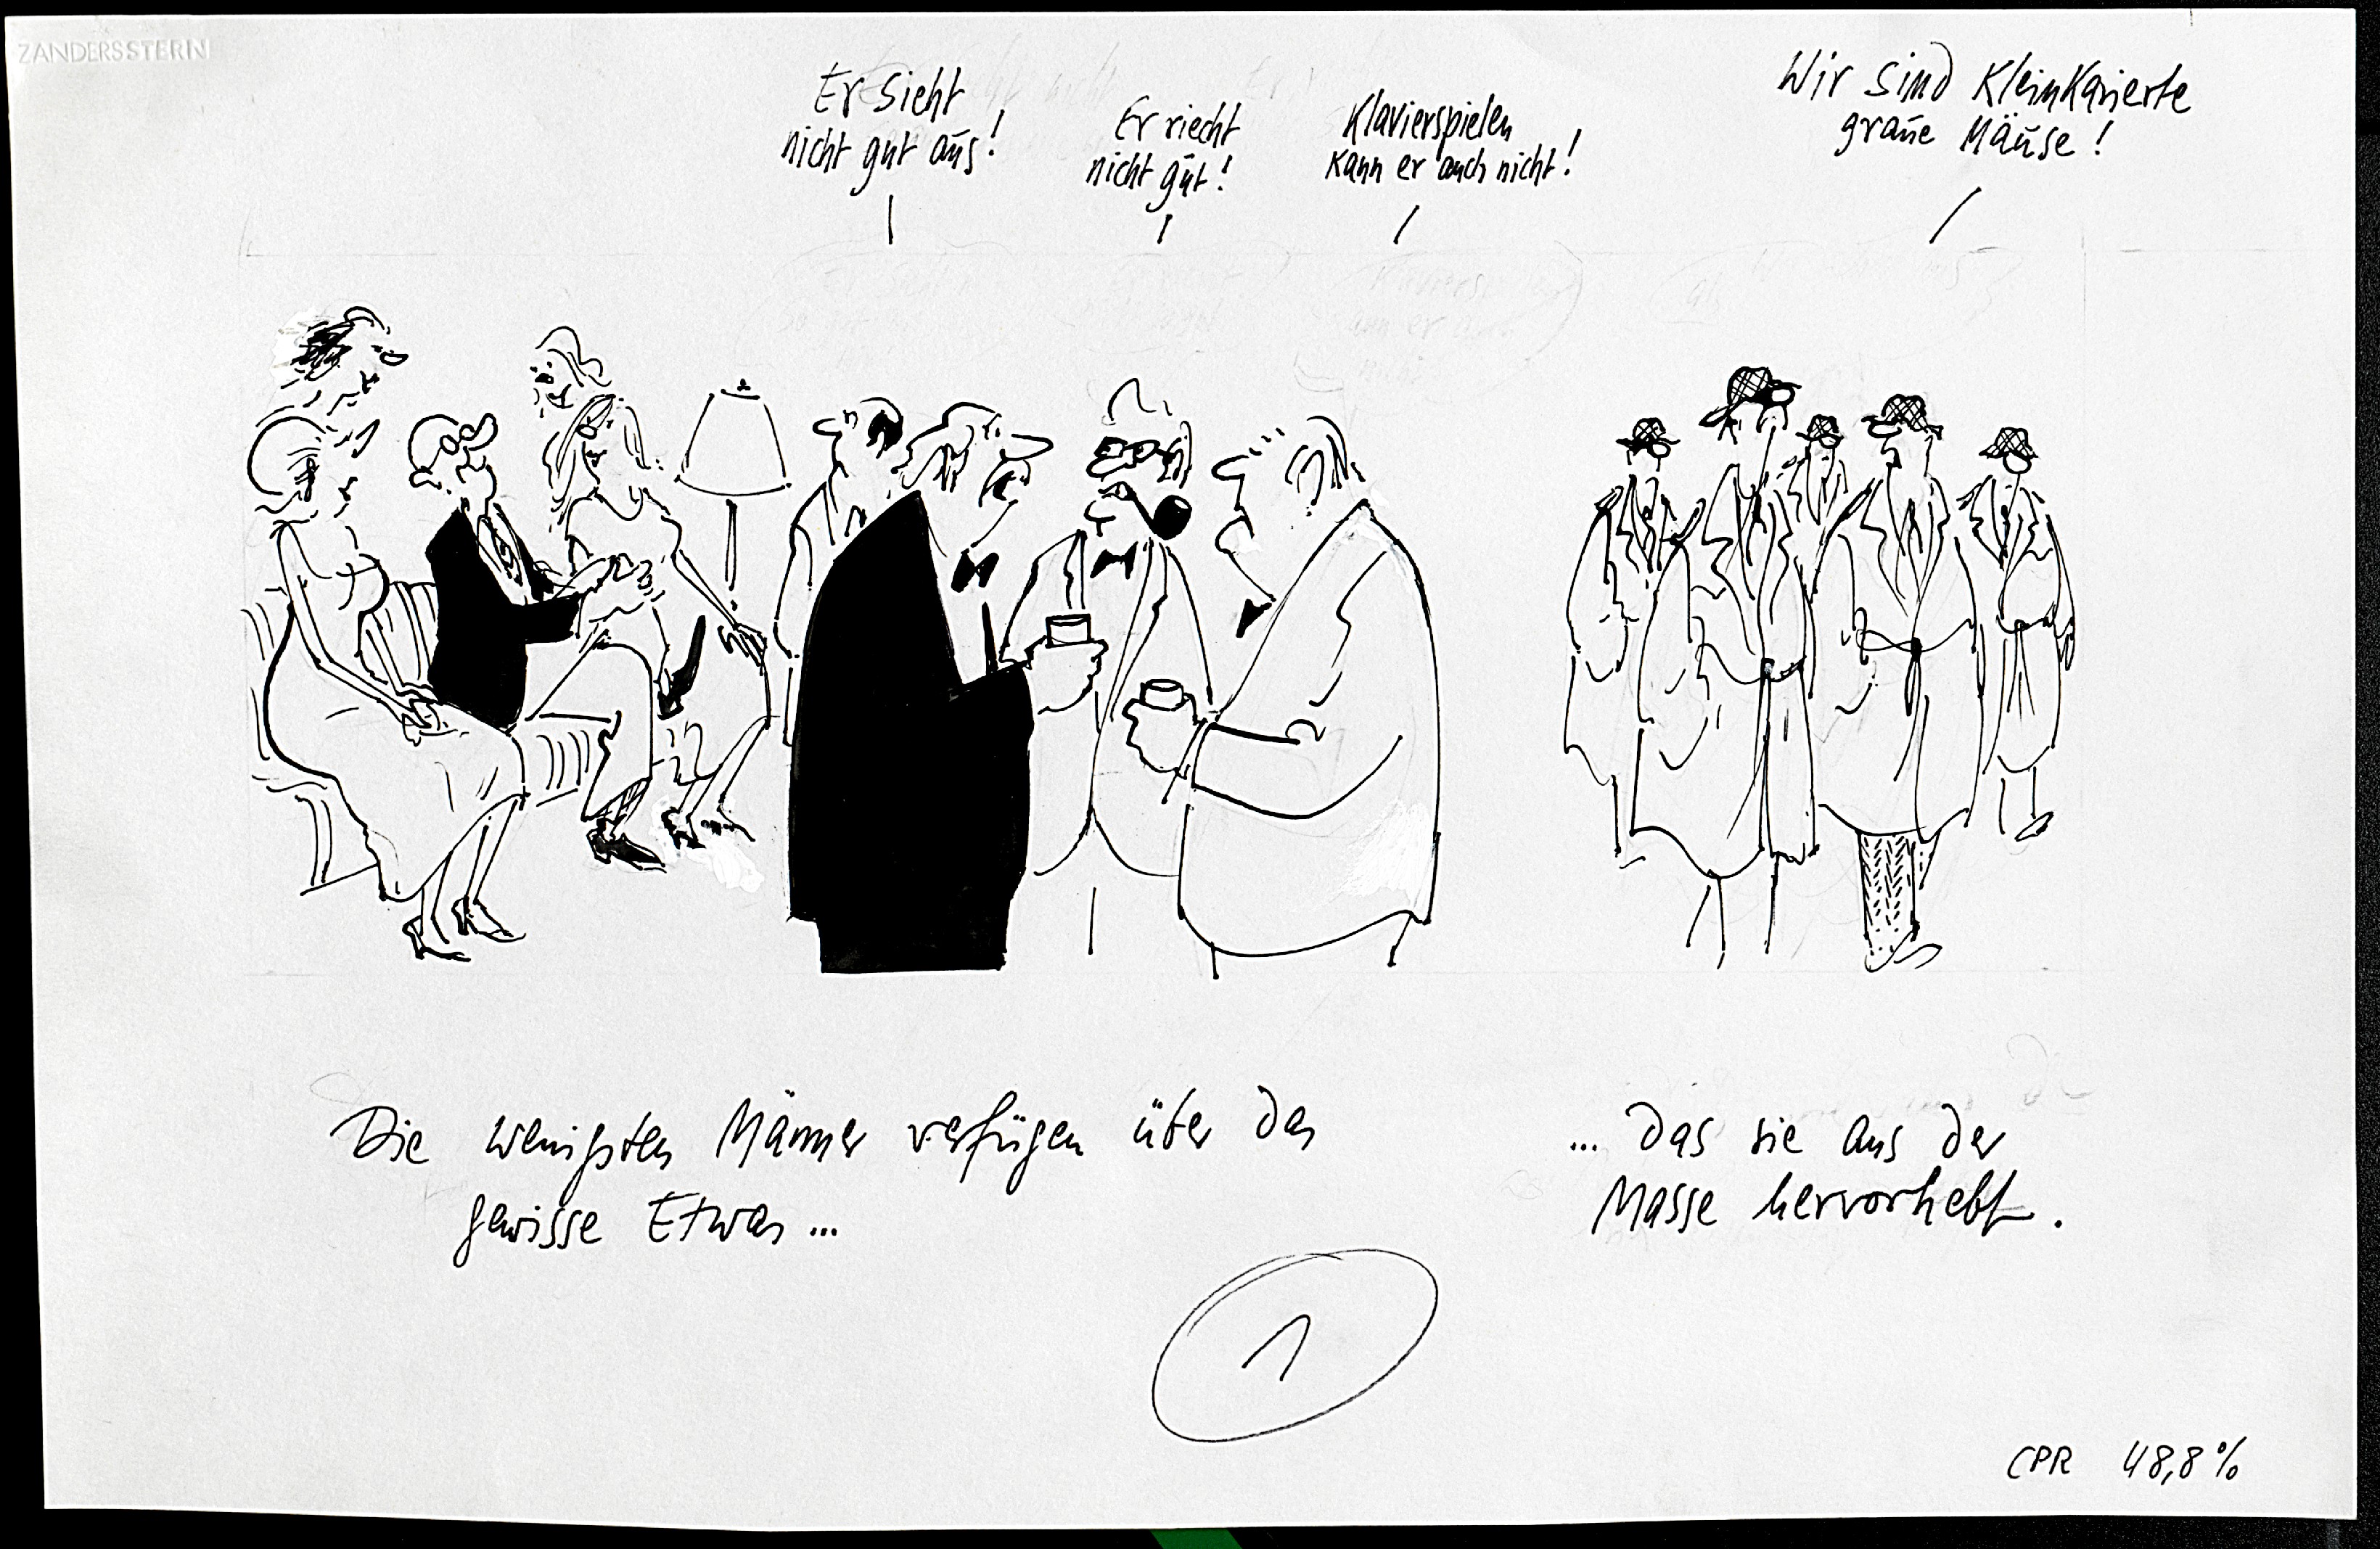 ZANDERSSTERN
Er sieht
nicht gut aus!
Er riecht
nicht gut!
Klavierspielen
kann er auch nicht!
Wir sind kleinkarierte
graue Mäuse!
Die wenigsten Männer verfügen über das
gewisse Etwas...
... das sie aus der
Masse hervorhebt.
1
CPR 48,8%